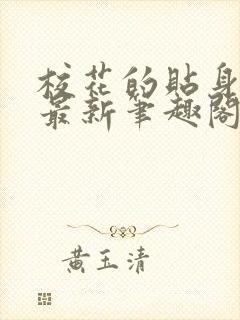 校花的贴身
最新笔趣阁
黄玉清